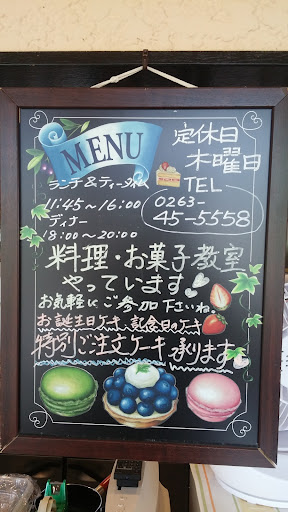 MENU
ランチ&ティータイム
11:45〜16:00
ディナー
18:00〜20:00
定休日
木曜日
TEL
0263-
45-5558
料理・お菓子教室
やっています
お気軽にご参加下さいね
お誕生日ケーキ、記念日のケーキ
特別ご注文ケーキ承ります